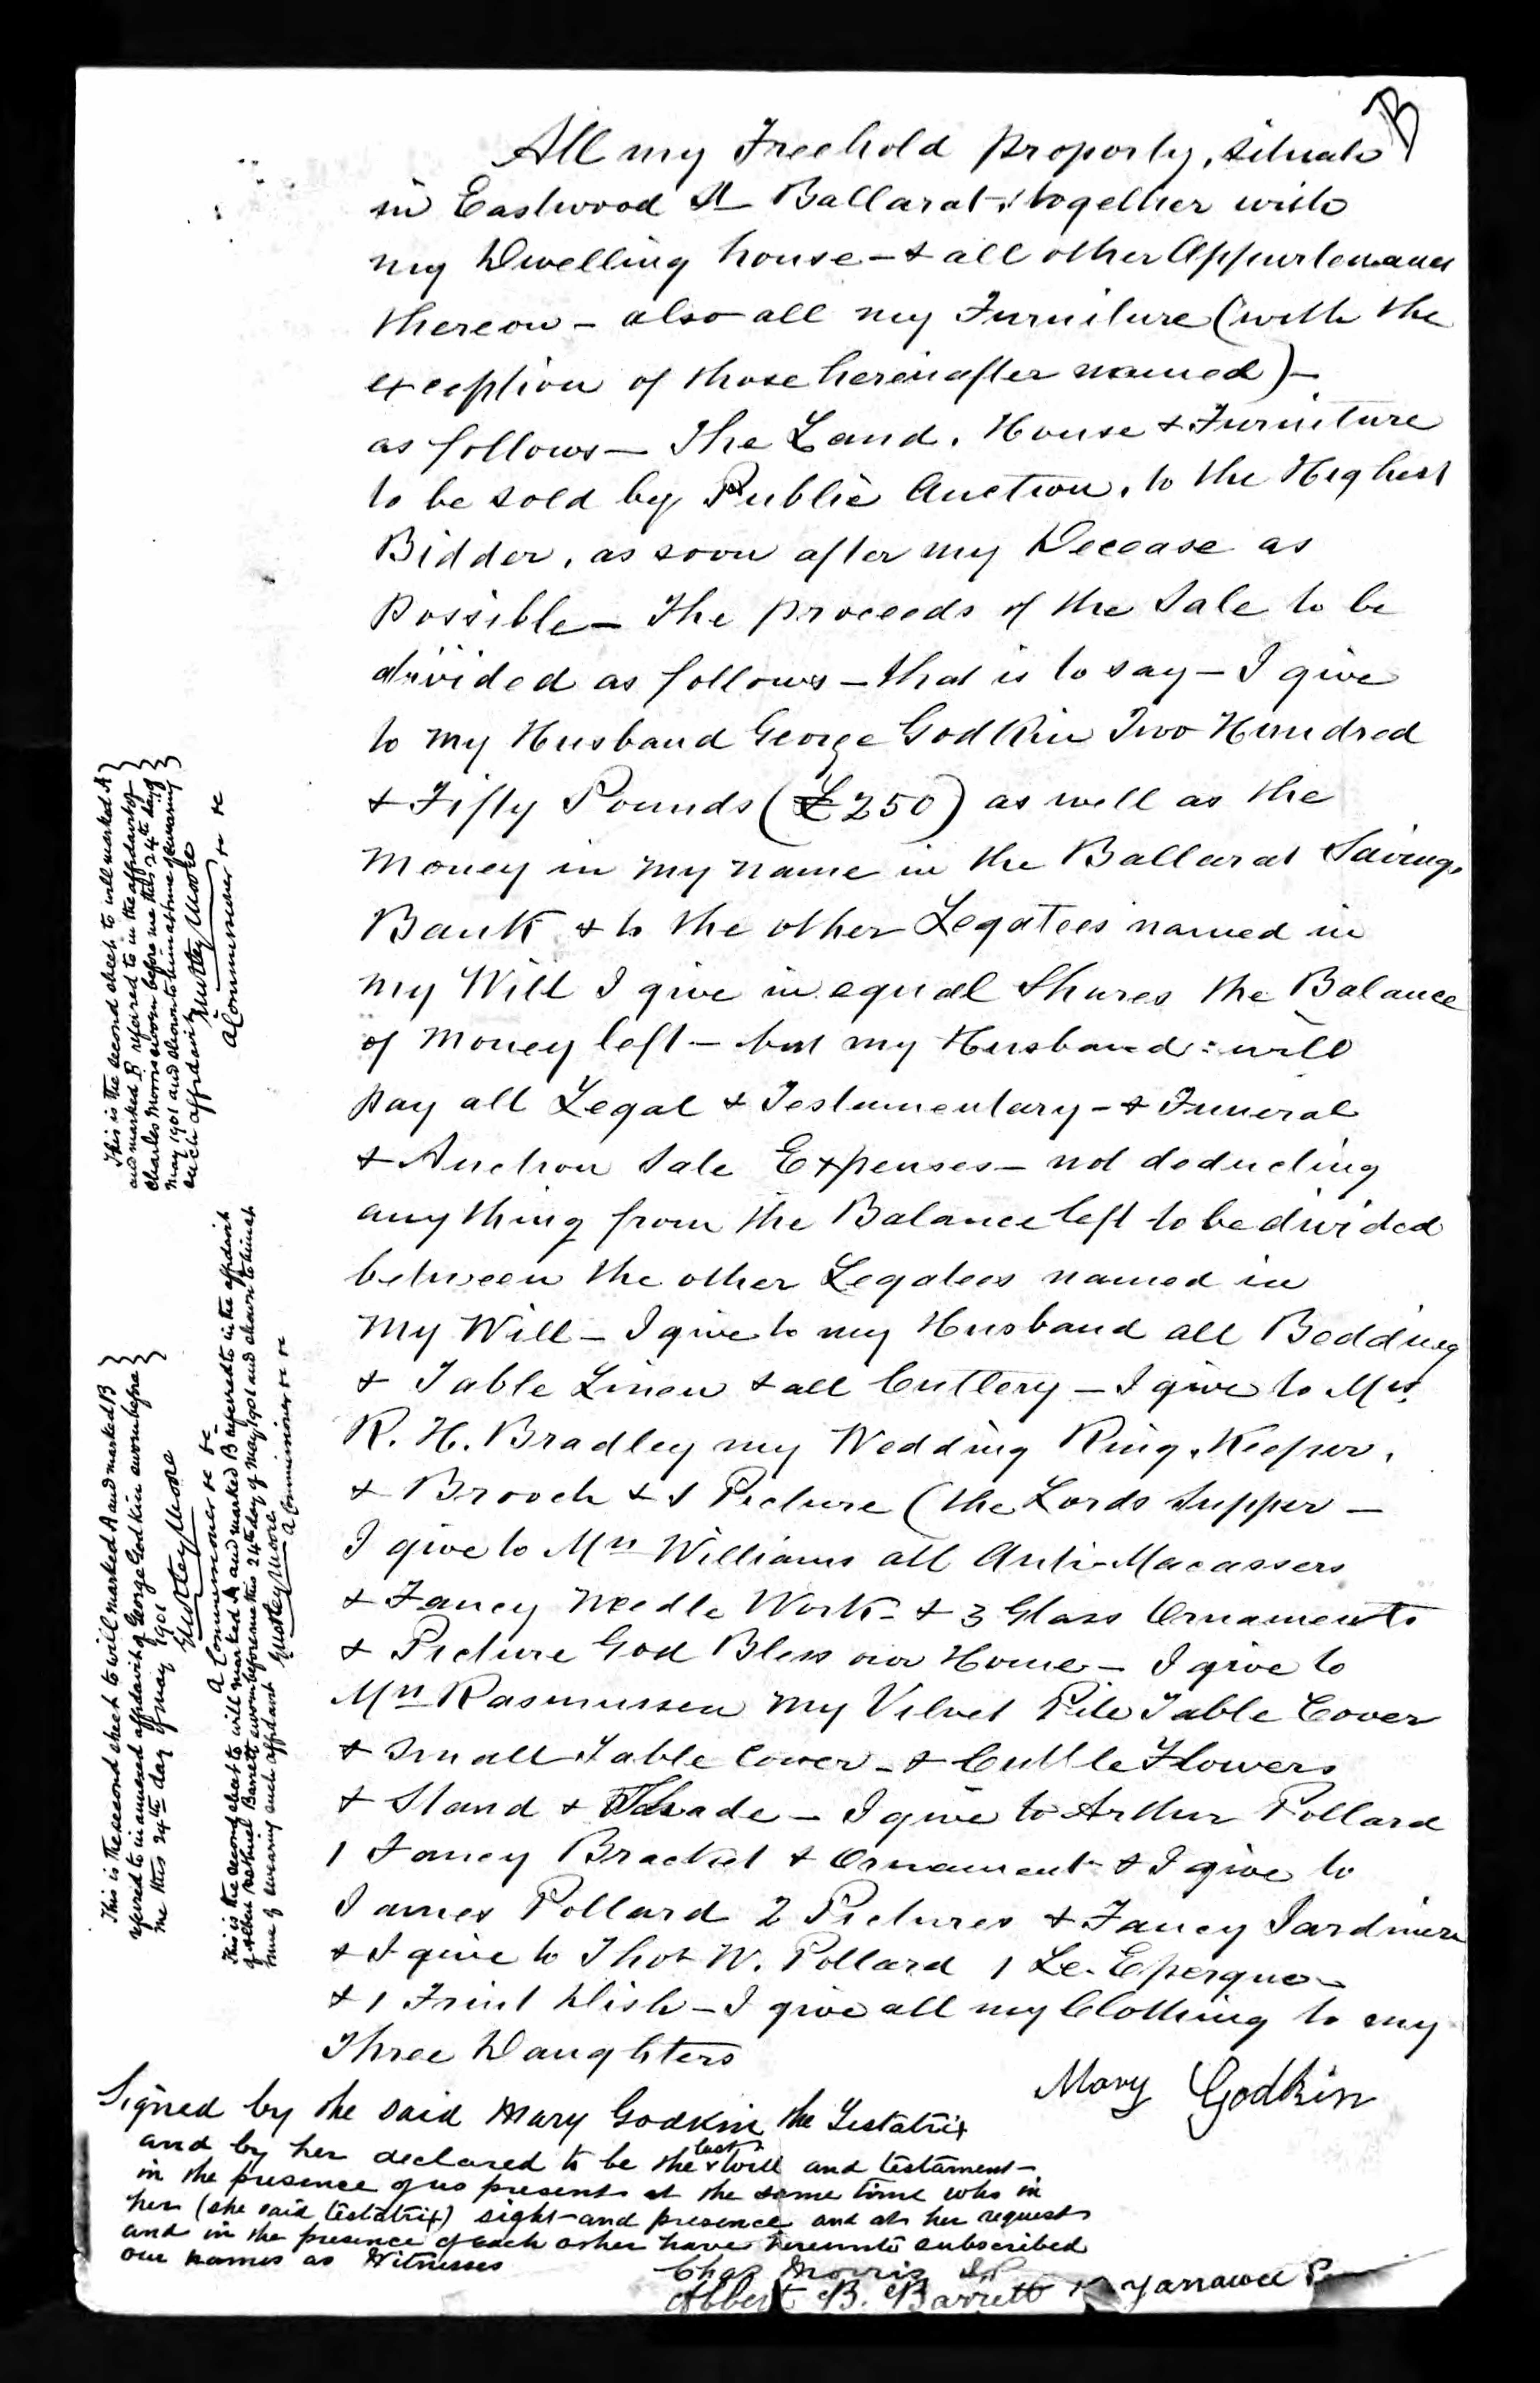 B
All my Freehold Property, situate
in Eastwood St Ballarat: together with
my Dwelling house - & all other Appurtenances
thereon - also all my Furniture (with the
exception of those hereinafter named) -
as follows - The Land, House & Furniture
to be sold by Public Auction, to the Highest
Bidder, as soon after my Decease as
Possible - The proceeds of the Sale to be
divided as follows - that is to say - I give
to my Husband George Godkin Two Hundred
& Fifty Pounds (£250) as well as the
Money in my name in the Ballarat Savings
Bank & to the other Legatees named in
my Will I give in equal Shares the Balance
of Money left - but my Husband: will
pay all Legal & Testamentary - & Funeral
& Auction Sale Expenses - not deducting
anything from the Balance left to be divided
between the other Legatees named in
My Will - I give to my Husband all Bedding
& Table Linen & all Cuttlery - I give to Mrs.
R. H. Bradley my Wedding Ring, Keeper,
& Brooch & 1 Picture (the Lords Supper -
I give to Mrs Williams all Anti-Macassers
& Fancy Needle Work - & 3 Glass Ornaments
& Picture God Bless our Home - I give to
Mrs Rasmussen my Velvet Pile Table Cover
& Small Table Cover - & Cuttle Flowers
& Stand & Shade - I give to Arthur Pollard
1 Fancy Bracket & Ornament & I give to
James Pollard 2 Pictures & Fancy Jardiniere
& I give to Thos W. Pollard 1 Le. Epergne -
& 1 Fruit Dish - I give all my Clothing to my
Three Daughters
Mary Godkin
Signed by the said Mary Godkin the Testatrix
and by her declared to be the last will and testament -
in the presence of us present at the same time who in
her (the said testatrix) sight and presence and at her request
and in the presence of each other have hereunto subscribed
our names as Witnesses
Chas Morris J.P.
Albert B. Barrett Yarrawee
This is the second sheet to will marked A
and marked B referred to in the affidavit of
Charles Morris sworn before me this 24th day of
May 1901 and shown to him at time of swearing
such affidavit
Huttley Moore
a Commissioner &c &c
This is the second sheet to will marked A and marked B
referred to in annexed affidavit of George Godkin sworn before
me this 24th day of May 1901
Huttley Moore
a Commissioner &c &c
This is the second sheet to will marked A and marked B referred to in the affidavit
of Albert Barrett sworn before me this 24th day of May 1901 and shown to him at
time of swearing such affidavit Huttley Moore
a Commissioner &c &c